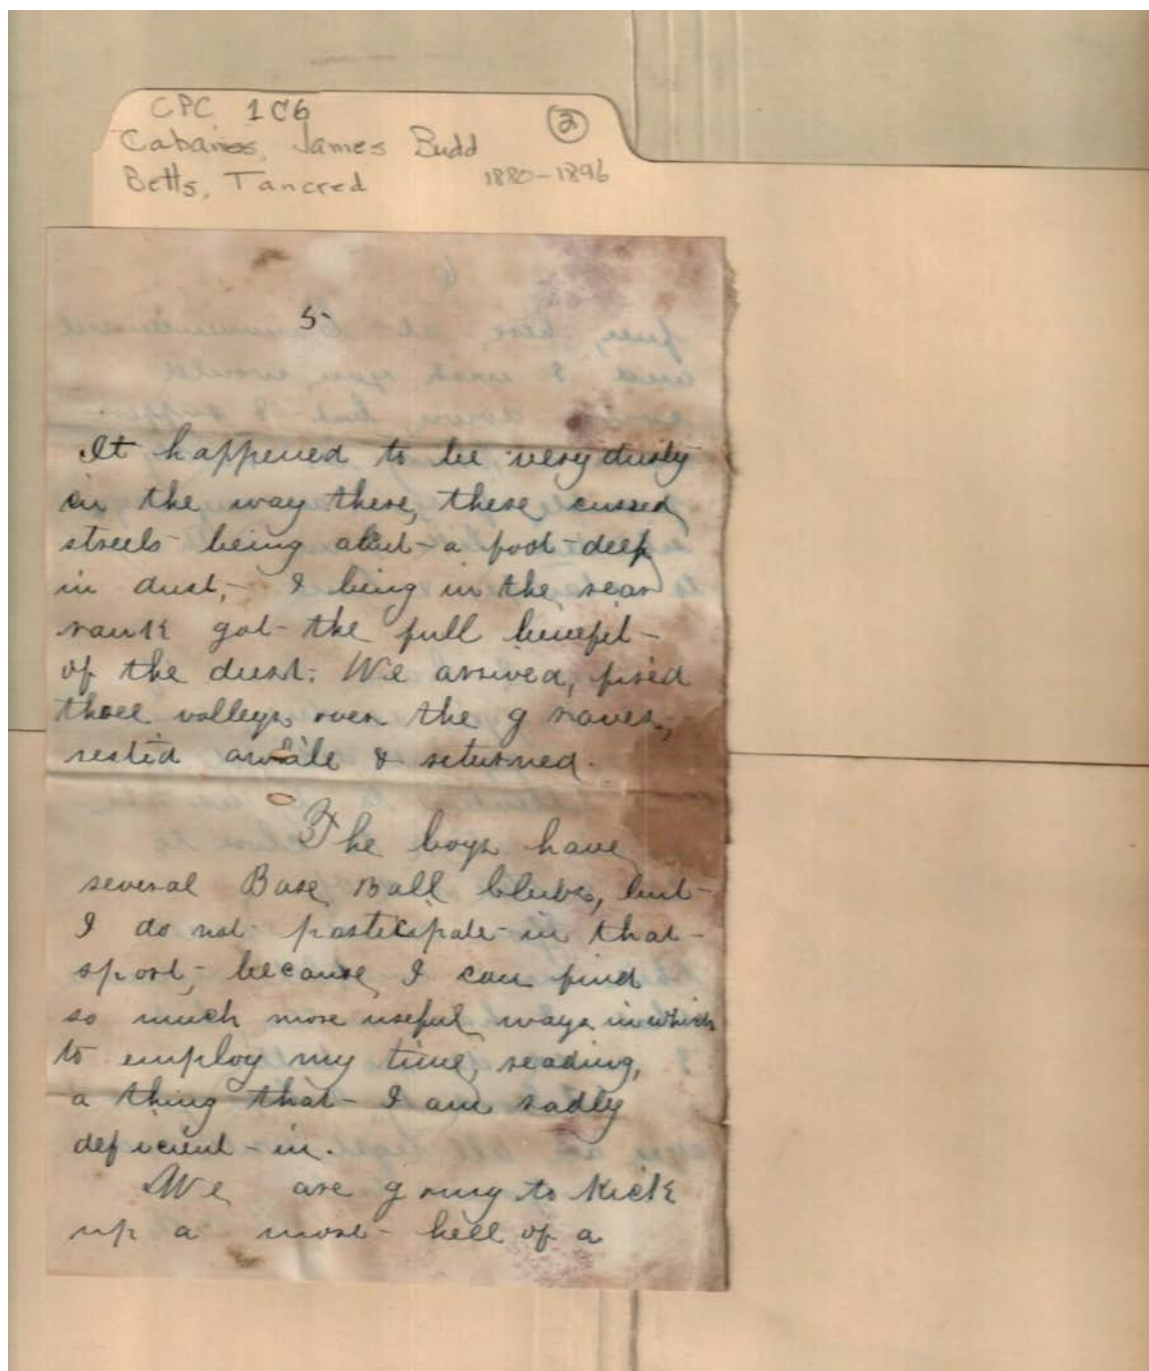 CPC 1C6
②
Cabaniss, James Budd
Betts, Tancred 1880-1896
5-
It happened to be very dusty
in the way there, these cussed
streets being about a foot deep
in dust, - I being in the rear
rank got the full benefit
of the dust. We arrived, fired
three volleys over the graves,
rested awhile & returned.
The boys have
several Base Ball Clubs, but
I do not participate in that
sport, because I can find
so much more useful ways in which
to employ my time, reading,
a thing that I am sadly
deficient in.
We are going to kick
up a most hell of a